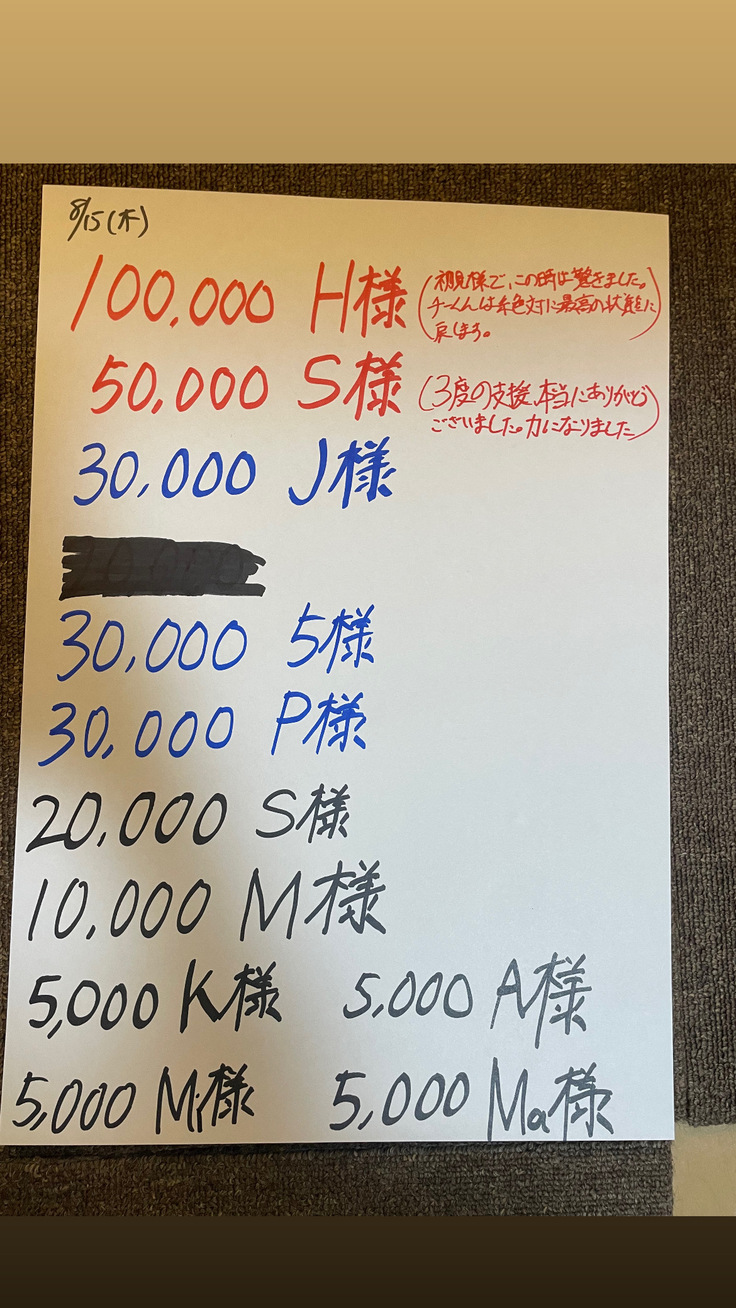 8/15(木)
100,000 H様
(初見様で、この時は驚きました。
チーくんは絶対に最高の状態に
戻しまう。)
50,000 S様
(3度の支援、本当にありがとう
ございました。力になりました)
30,000 J様
30,000 5様
30,000 P様
20,000 S様
10,000 M様
5,000 K様 5,000 A様
5,000 Mi様 5,000 Ma様